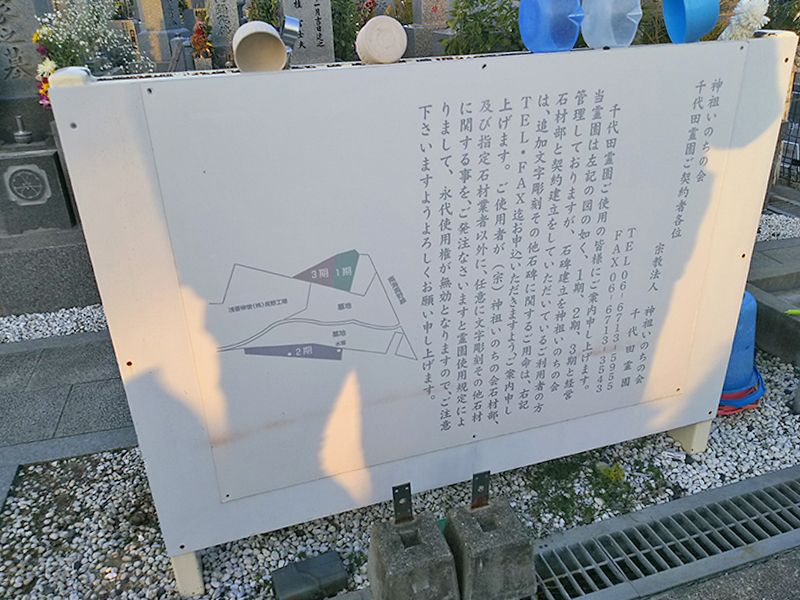 神祖いのちの会
千代田霊園ご契約者各位
宗教法人 神祖いのちの会
千代田霊園
TEL06-6713-5955
FAX06-6713-3543
千代田霊園ご使用の皆様にご案内申し上げます。
当霊園は左記の図の如く、1期、2期、3期と経営
管理しておりますが、石碑建立を神祖いのちの会
石材部と契約建立をしていただいているご利用者の方
は、追加文字彫刻その他石碑に関するご用命は、右記
TEL・FAX迄お申込いただきますようご案内申し
上げます。ご使用者が(宗)神祖いのちの会石材部、
及び指定石材業者以外に、任意に文字彫刻その他石材
に関する事を、ご発注なさいますと霊園使用規定によ
りまして、永代使用権が無効となりますので、ご注意
下さいますようよろしくお願い申し上げます。
3期
1期
墓地
墓地
2期